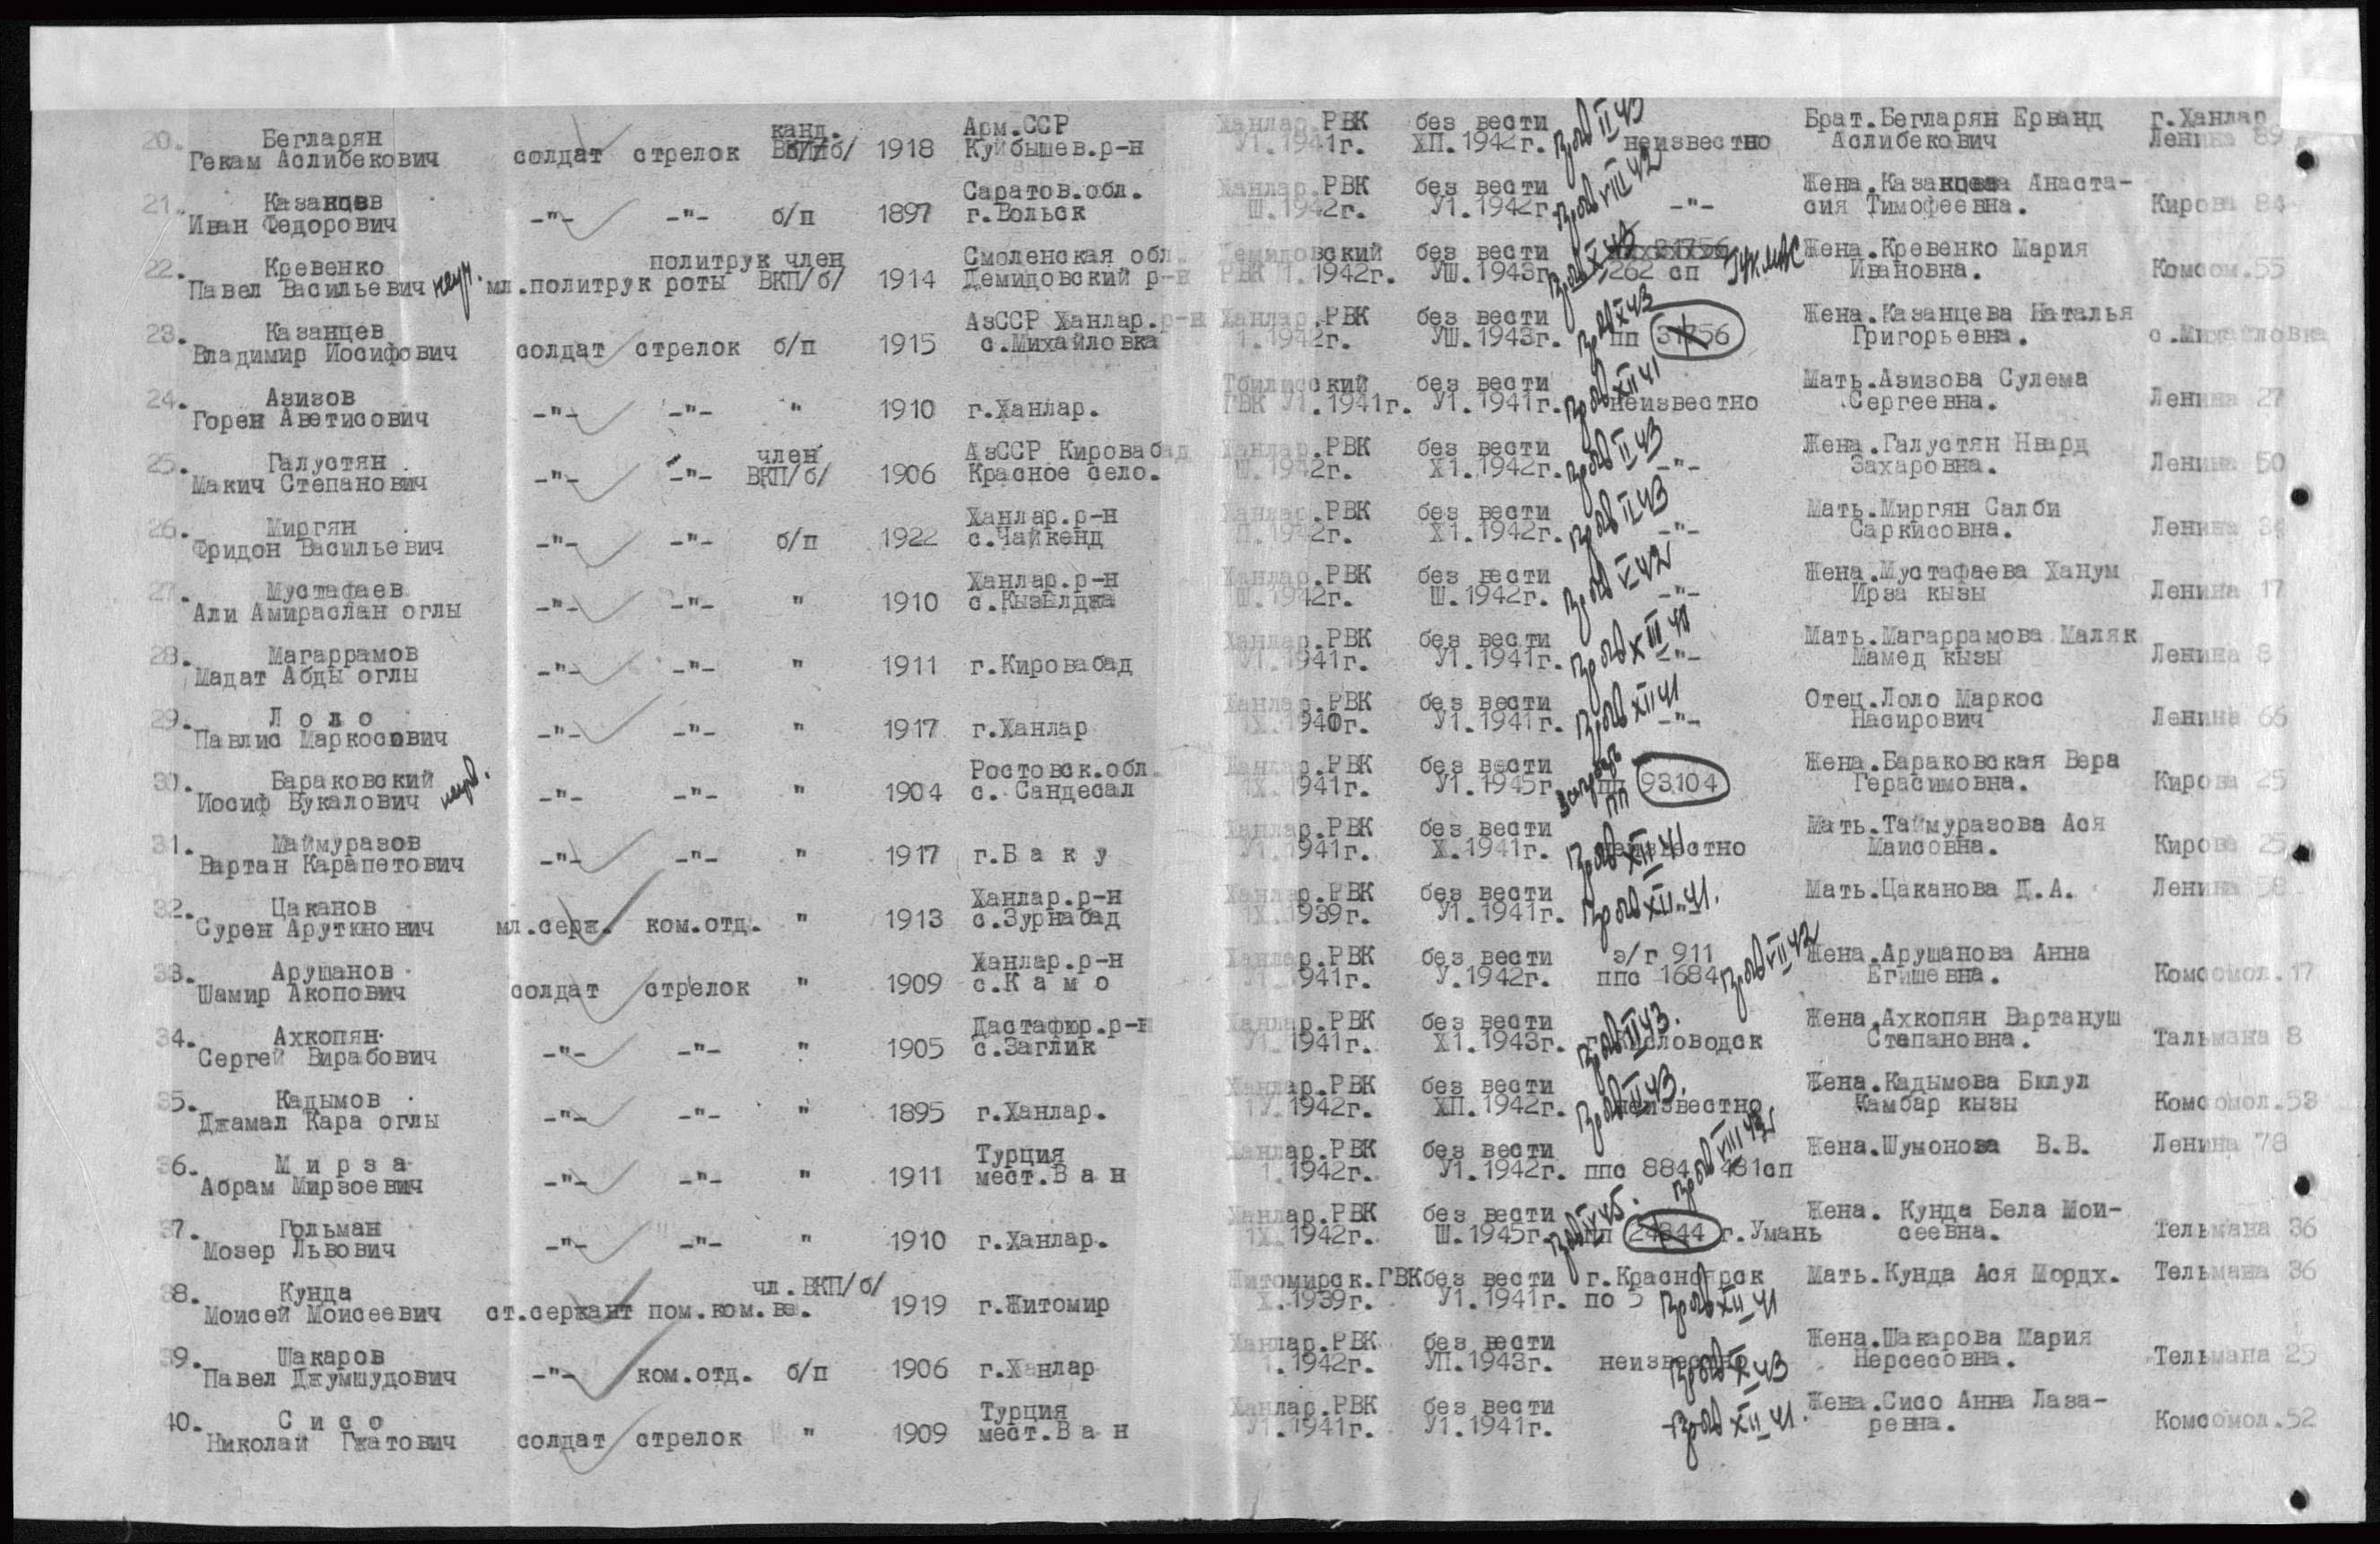 20. Бегларян канд. Арм.ССР Ханлар.РВК без вести Проп II 43 Брат.Бегларян Ерванд г.Ханлар
Гекам Аслибекович солдат стрелок ВКП/б/ 1918 Куйбышев.р-н У1.1941г. ХП.1942г. неизвестно Аслибекович Ленина 89
21. Казанцев Саратов.обл. Ханлар.РВК без вести Проп VIII 42 Жена.Казанцева Анаста-
Иван Федорович -"- -"- б/п 1897 г.Вольск Ш.1942г. У1.1942г. -"- сия Тимофеевна. Кирова 84
22. Кревенко политрук член Смоленская обл. Демидовский без вести Проп X 43 Жена.Кревенко Мария
Павел Васильевич мл.политрук роты ВКП/б/ 1914 Демидовский р-н РВК 1.1942г. УШ.1943г. 262 сп Ивановна. Комсом.55
23. Казанцев АзССР Ханлар.р-н Ханлар.РВК без вести Проп X 43 Жена.Казанцева Наталья
Владимир Иосифович солдат стрелок б/п 1915 с.Михайловка 1.1942г. УШ.1943г. пп 31756 Григорьевна. с.Михайловка
24. Азизов Тбилисский без вести Проп XII 41 Мать.Азизова Сулема
Горен Аветисович -"- -"- " 1910 г.Ханлар. ГВК У1.1941г. У1.1941г. неизвестно Сергеевна. Ленина 27
25. Галустян член АзССР Кировабад Ханлар.РВК без вести Проп II 43 Жена.Галустян Нвард
Макич Степанович -"- -"- ВКП/б/ 1906 Красное село. Ш.1942г. Х1.1942г. -"- Захаровна. Ленина 50
26. Миргян Ханлар.р-н Ханлар.РВК без вести Проп II 43 Мать.Миргян Салби
Фридон Васильевич -"- -"- б/п 1922 с.Чайкенд 1942г. Х1.1942г. -"- Саркисовна. Ленина 34
27. Мустафаев Ханлар.р-н Ханлар.РВК без вести Проп V 42 Жена.Мустафаева Ханум
Али Амираслан оглы -"- -"- " 1910 с.Кызылджа Ш.1942г. Ш.1942г. -"- Ирза кызы Ленина 17
28. Магаррамов Ханлар.РВК без вести Проп Мать.Магаррамова Маляк
Мадат Абды оглы -"- -"- " 1911 г.Кировабад У1.1941г. У1.1941г. -"- Мамед кызы Ленина 8
29. Л о л о Ханлар.РВК без вести Проп XII 41 Отец.Лоло Маркос
Павлис Маркосович -"- -"- " 1917 г.Ханлар 1Х.1940г. У1.1941г. -"- Насирович Ленина 66
30. Бараковский Ростовск.обл. Ханлар.РВК без вести Жена.Бараковская Вера
Иосиф Вукалович -"- -"- " 1904 с. Сандесал 1Х.1941г. У1.1945г. пп 93104 Герасимовна. Кирова 25
31. Маймуразов Ханлар.РВК без вести Мать.Таймуразова Ася
Вартан Карапетович -"- -"- " 1917 г.Б а к у У1.1941г. Х.1941г. неизвестно Проп XII 41 Маисовна. Кирова 25
32. Цаканов Ханлар.р-н Ханлар.РВК без вести Мать.Цаканова Д.А. Ленина 58
Сурен Арутюнович мл.серж. ком.отд. " 1913 с.Зурнабад 1Х.1939г. У1.1941г. Проп XII 41.
33. Арушанов Ханлар.р-н Ханлар.РВК без вести э/г 911 Проп VII 42 Жена.Арушанова Анна
Шамир Акопович солдат стрелок " 1909 с.К а м о У1.1941г. У.1942г. ппс 1684 Егишевна. Комсомол.17
34. Ахкопян Дастафюр.р-н Ханлар.РВК без вести Проп II 43. Жена.Ахкопян Вартануш
Сергей Вирабович -"- -"- " 1905 с.Заглик У1.1941г. Х1.1943г. г.Кисловодск Степановна. Тальмана 8
35. Кадымов Ханлар.РВК без вести Проп II 43. Жена.Кадымова Бюлул
Джамал Кара оглы -"- -"- " 1895 г.Ханлар. 1У.1942г. ХП.1942г. неизвестно Камбар кызы Комсомол.53
36. М и р з а Турция Ханлар.РВК без вести Проп VIII 42 Жена.Шумонова В.В. Ленина 78
Абрам Мирзоевич -"- -"- " 1911 мест.В а н 1.1942г. У1.1942г. ппс 884 481сп
37. Гольман Ханлар.РВК без вести Жена. Кунда Бела Мои-
Мозер Львович -"- -"- " 1910 г.Ханлар. 1Х.1942г. Ш.1945г. пп 24844 г.Умань сеевна. Тельмана 36
38. Кунда чл.ВКП/б/ Житомирск.ГВК без вести г.Красноярск Мать.Кунда Ася Мордх. Тельмана 36
Моисей Моисеевич ст.сержант пом.ком.вз. 1919 г.Житомир Х.1939г. У1.1941г. по 5 Проп XII 41
39. Шакаров Ханлар.РВК без вести Жена.Шакарова Мария
Павел Джумшудович -"- ком.отд. б/п 1906 г.Ханлар 1.1942г. УП.1943г. неизвестно Проп X 43 Нерсесовна. Тельмана 25
40. С и с о Турция Ханлар.РВК без вести Проп XII 41. Жена.Сисо Анна Лаза-
Николай Гжатович солдат стрелок " 1909 мест.В а н У1.1941г. У1.1941г. ревна. Комсомол.52